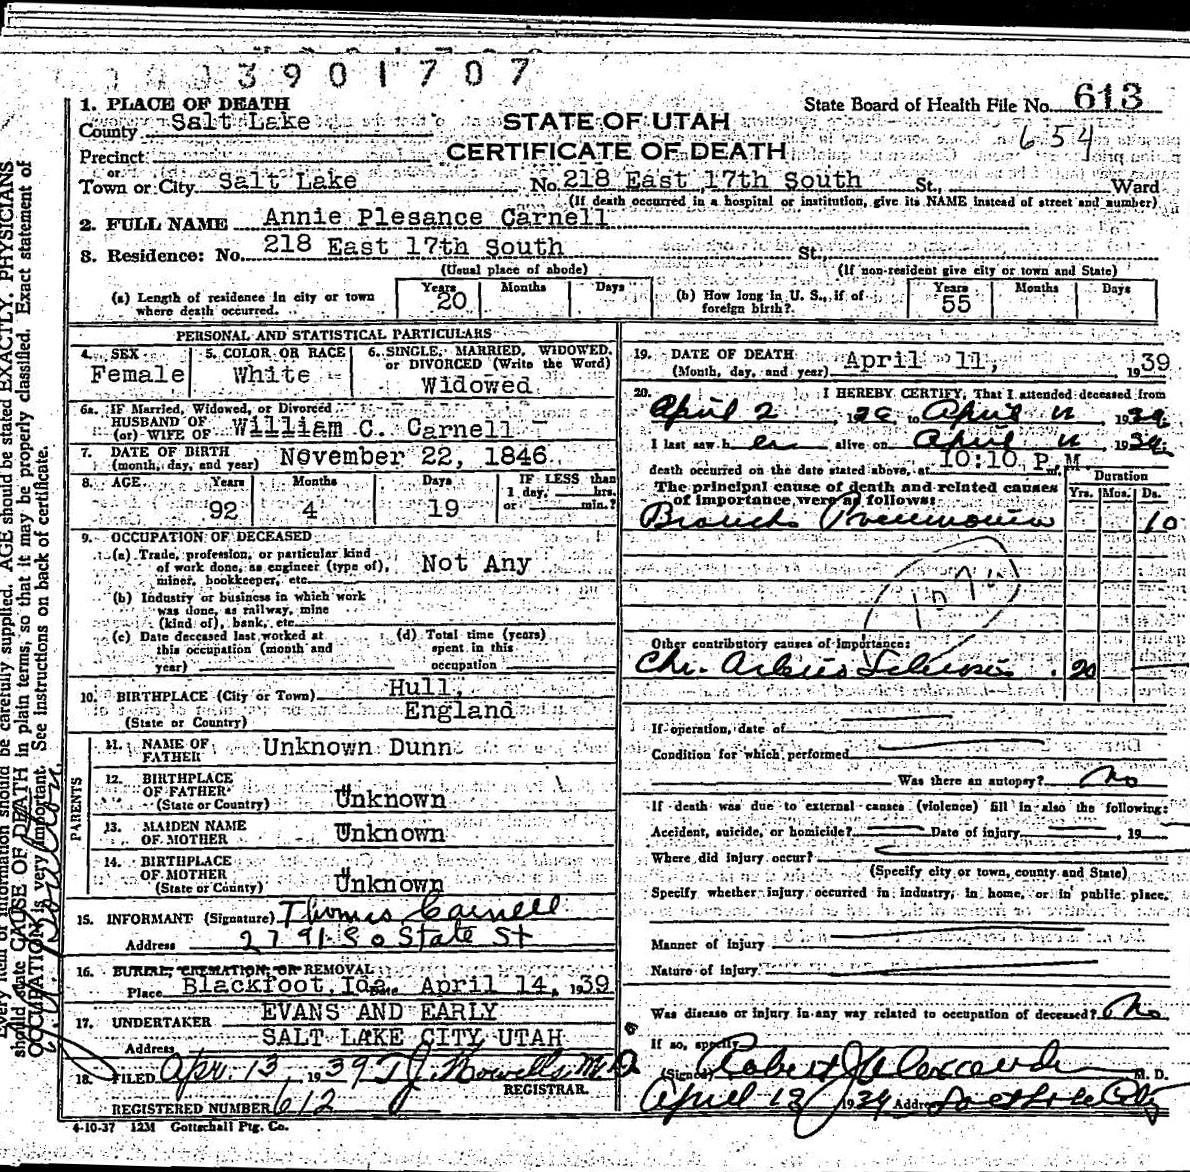 3901707
1. PLACE OF DEATH
State Board of Health File No. 613
County Salt Lake
STATE OF UTAH
654
Precinct
CERTIFICATE OF DEATH
or
Town or City Salt Lake No. 218 East 17th South St., Ward
(If death occurred in a hospital or institution, give its NAME instead of street and number)
2. FULL NAME Annie Plesance Carnell
3. Residence: No. 218 East 17th South St.
(Usual place of abode) (If non-resident give city or town and State)
(a) Length of residence in city or town where death occurred. Years 20 Months Days
(b) How long in U. S., if of foreign birth? Years 55 Months Days
PERSONAL AND STATISTICAL PARTICULARS
4. SEX Female
5. COLOR OR RACE White
6. SINGLE, MARRIED, WIDOWED, or DIVORCED (Write the Word) Widowed
6a. IF Married, Widowed, or Divorced
HUSBAND OF
(or) WIFE OF William C. Carnell
7. DATE OF BIRTH
(month, day, and year) November 22, 1846.
8. AGE Years Months Days IF LESS than
92 4 19 1 day, hrs.
or min.?
9. OCCUPATION OF DECEASED
(a) Trade, profession, or particular kind
of work done, as engineer (type of),
miner, bookkeeper, etc. Not Any
(b) Industry or business in which work
was done, as railway, mine
(kind of), bank, etc.
(c) Date deceased last worked at
this occupation (month and
year)
(d) Total time (years)
spent in this
occupation
10. BIRTHPLACE (City or Town) Hull,
(State or Country) England
PARENTS
11. NAME OF
FATHER Unknown Dunn
12. BIRTHPLACE
OF FATHER
(State or Country) Unknown
13. MAIDEN NAME
OF MOTHER Unknown
14. BIRTHPLACE
OF MOTHER
(State or County) Unknown
15. INFORMANT (Signature) Thomas Carnell
Address 2791 So State St
16. BURIAL, CREMATION, OR REMOVAL
Place Blackfoot, Ida Date April 14, 1939
17. UNDERTAKER EVANS AND EARLY
Address SALT LAKE CITY UTAH
18. FILED Apr. 13, 1939 T.J. Howells M.D.
REGISTRAR.
REGISTERED NUMBER 612
4-10-37 12M Gottschall Ptg. Co.
19. DATE OF DEATH
(Month, day, and year) April 11, 1939
20. I HEREBY CERTIFY, That I attended deceased from
April 2, 1939 to April 11 1939
I last saw her alive on April 11 1939
death occurred on the date stated above, at 10:10 P.M. m.
The principal cause of death and related causes
of importance were as follows:
Duration
Yrs. Mos. Ds.
Broncho Pneumonia 10
Other contributory causes of importance:
Chr. Arterio Sclerosis 20
If operation, date of
Condition for which performed
Was there an autopsy? No
If death was due to external causes (violence) fill in also the following:
Accident, suicide, or homicide? Date of injury , 19
Where did injury occur?
(Specify city or town, county and State)
Specify whether injury occurred in industry, in home, or in public place.
Manner of injury
Nature of injury
Was disease or injury in any way related to occupation of deceased? No
If so, specify
(Signed) Robert J Alexander M. D.
April 12 1939 Address Salt Lake City
Every item of information should be carefully supplied. AGE should be stated EXACTLY. PHYSICIANS
should state CAUSE OF DEATH in plain terms, so that it may be properly classified. Exact statement of
OCCUPATION is very important. See instructions on back of certificate.